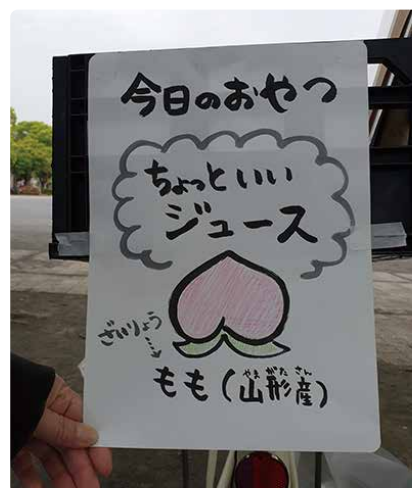 今日のおやつ
ちょっといい
ジュース
ざいりょう
もも(山形産)
やまがたさん